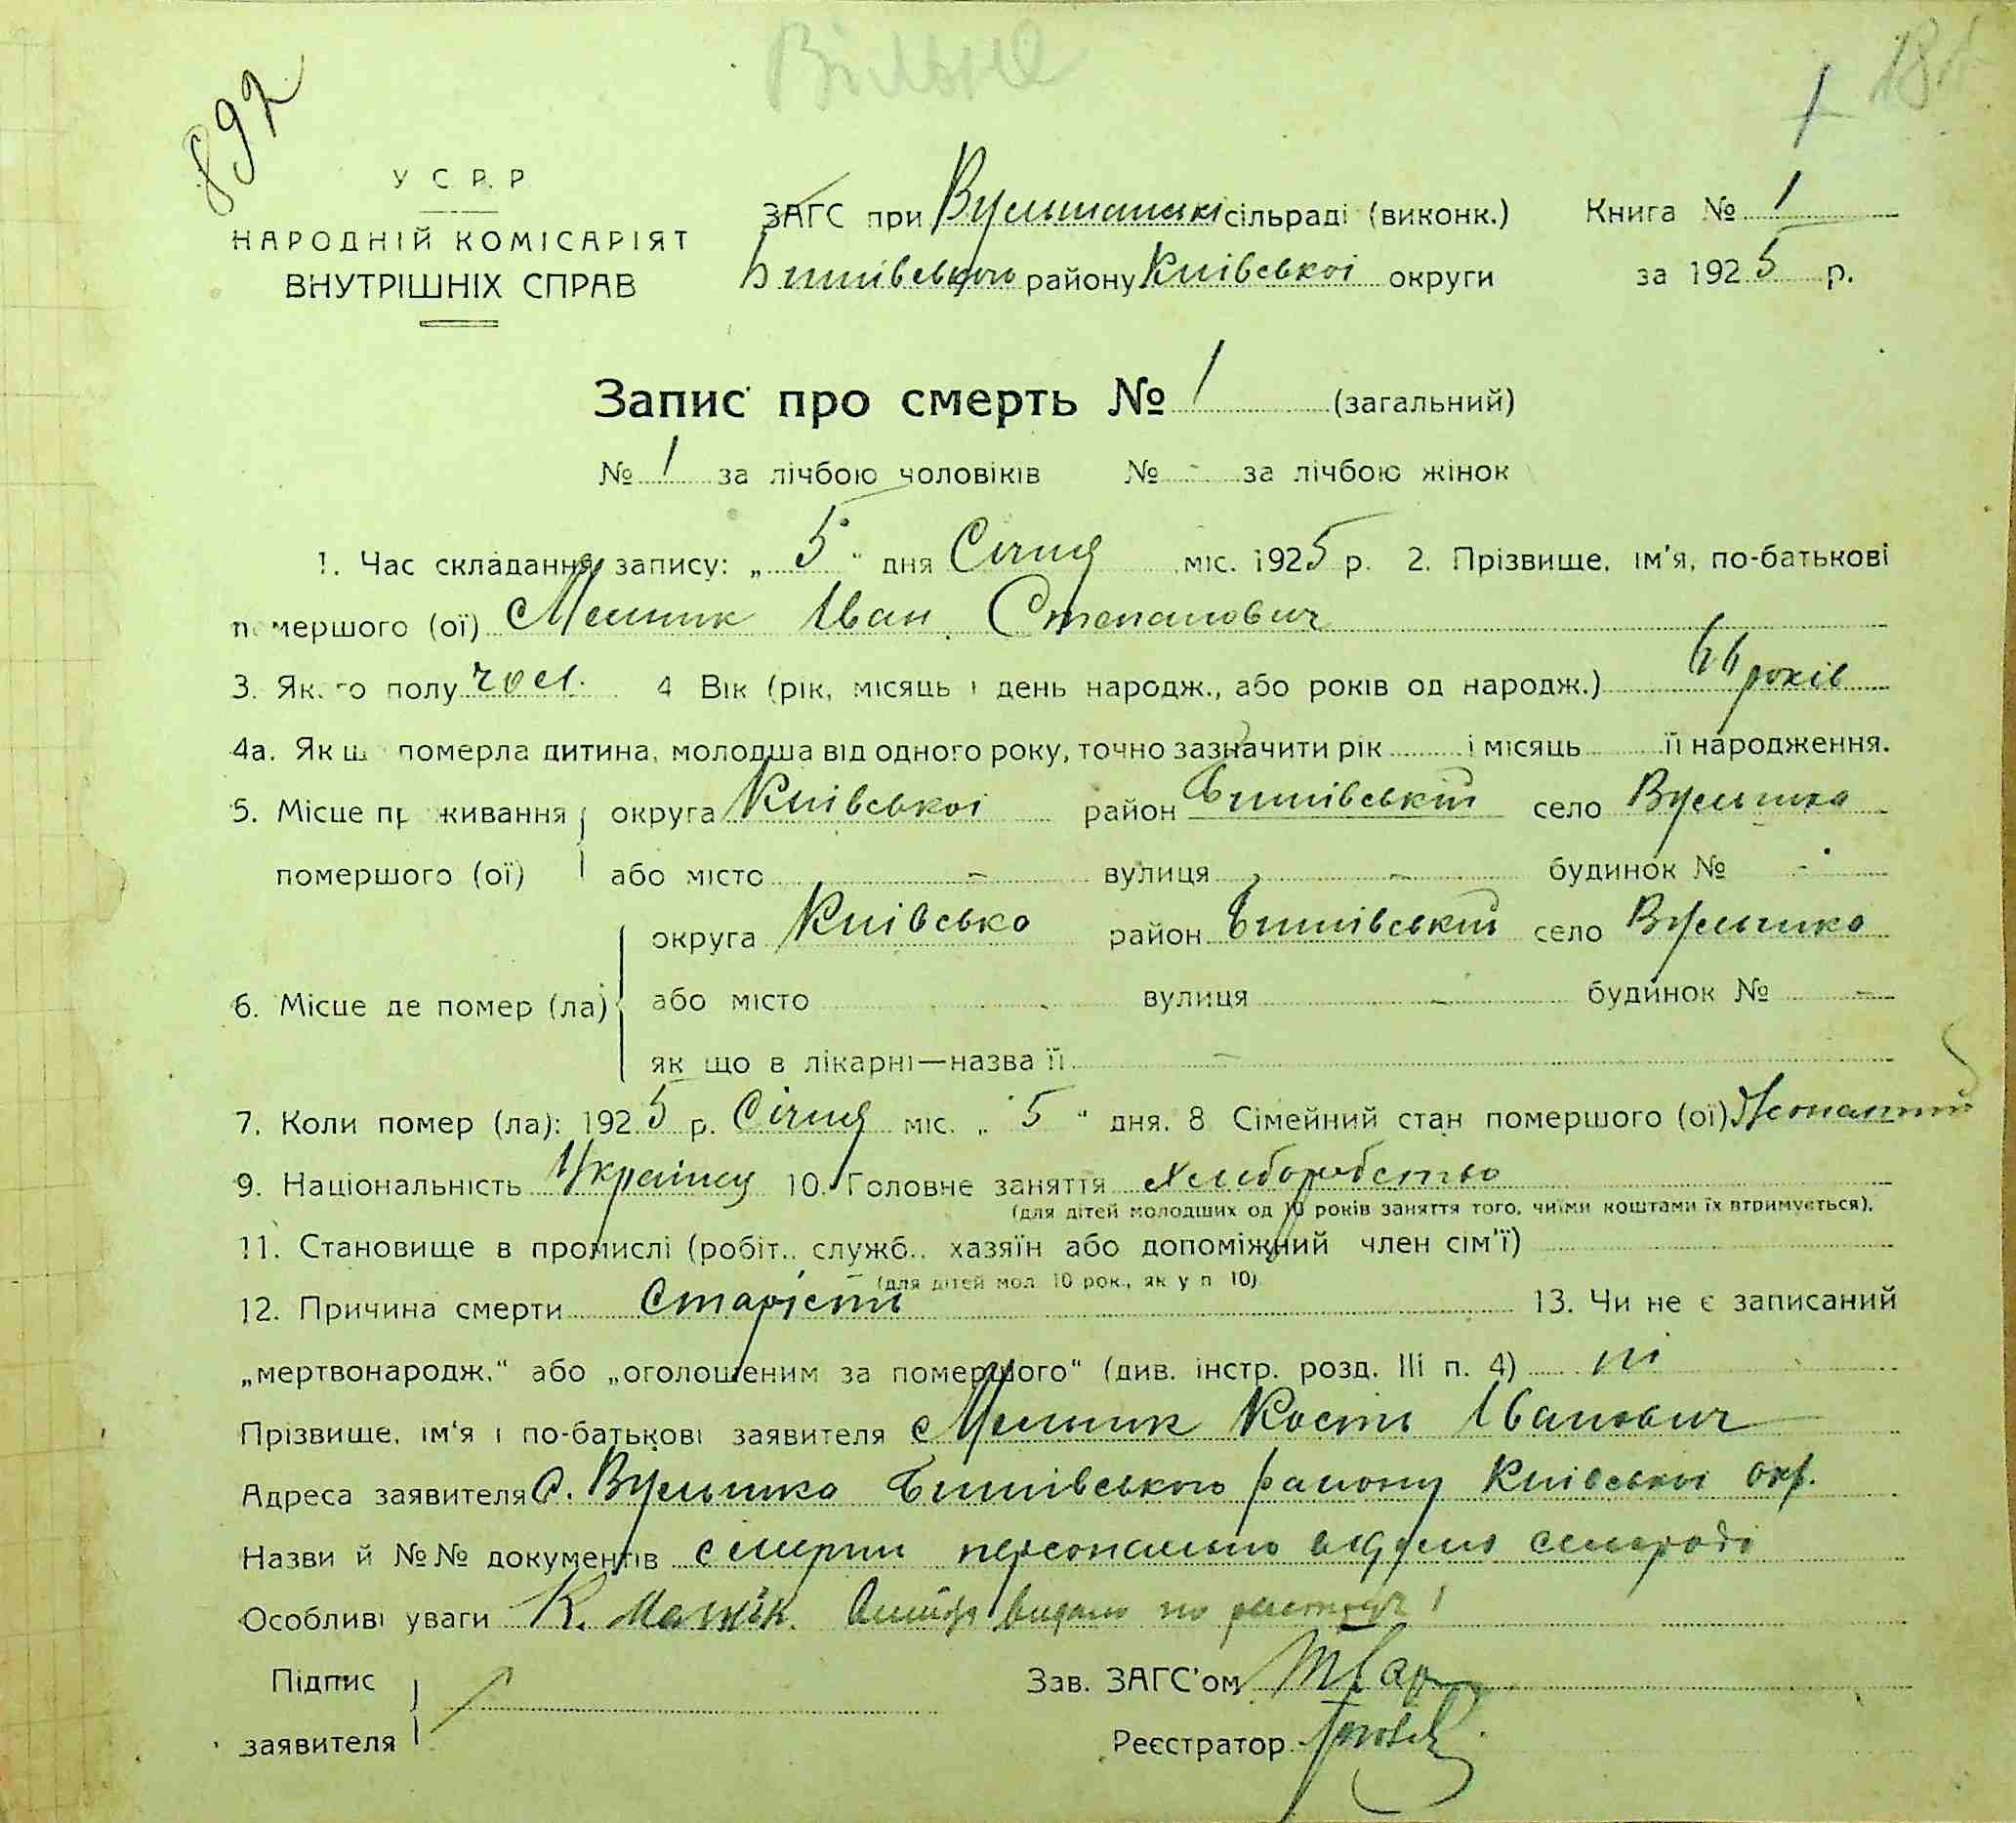 Вільне
892
1
У С Р. Р
НАРОДНІЙ КОМІСАРІЯТ
ВНУТРІШНІХ СПРАВ
ЗАГС при сільраді (виконк.) Книга № 1
району Київської округи за 1925 р.
Запис про смерть № 1 (загальний)
№ 1 за лічбою чоловіків № - за лічбою жінок
1. Час складання запису: „5" дня Січня міс. 1925 р. 2. Прізвище, ім'я, по-батькові
помершого (ої) Мельник Іван Степанович
3. Якого полу чол. 4 Вік (рік, місяць і день народж., або років од народж.) 66 років
4а. Як що померла дитина, молодша від одного року, точно зазначити рік і місяць її народження.
5. Місце проживання округа Київської район село
помершого (ої) або місто - вулиця - будинок № -
округа Київсько район село
6. Місце де помер (ла) або місто вулиця - будинок № -
як що в лікарні—назва її -
7. Коли помер (ла): 1925 р. Січня міс. „5" дня. 8 Сімейний стан помершого (ої) Жонатий
9. Національність Українец 10. Головне заняття хлиборобство
(для дітей молодших од 10 років заняття того, чиїми коштами їх втримується).
11. Становище в промислі (робіт., служб., хазяїн або допоміжний член сім'ї)
(для дітей мол. 10 рок., як у п 10)
12. Причина смерти Старість 13. Чи не є записаний
„мертвонародж." або „оголошеним за помершого" (див. інстр. розд. III п. 4) ні
Прізвище, ім'я і по-батькові заявителя Мельник Кость Іванович
Адреса заявителя С. району Київської окр.
Назви й №№ документів смерти персонально
Особливі уваги К. видано по
Підпис
заявителя
Зав. ЗАГС'ом
Реєстратор